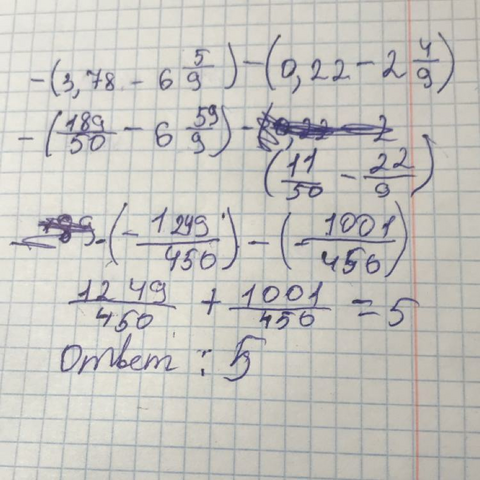 -(3,78 - 6 5/9) - (0,22 - 2 4/9)
-(189/50 - 6 59/9) -
(11/50 - 22/9)
-(-1249/450) - (-1001/450)
1249/450 + 1001/450 = 5
Ответ : 5